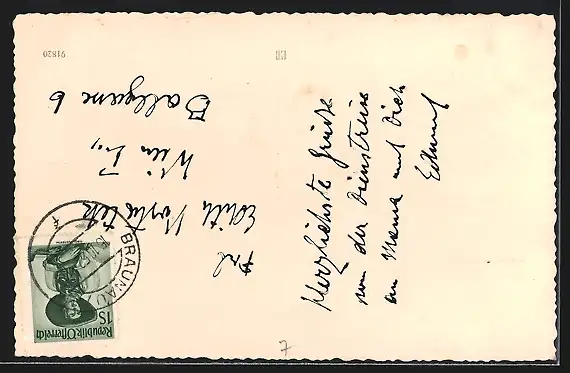 Herzlichste Grüße
von der Dienstreise
an Mama und Dich
Edmund
Frl
Edith
Wien I.,
Ballgasse 6
BRAUNAU
Republik Österreich
1S
91820
7